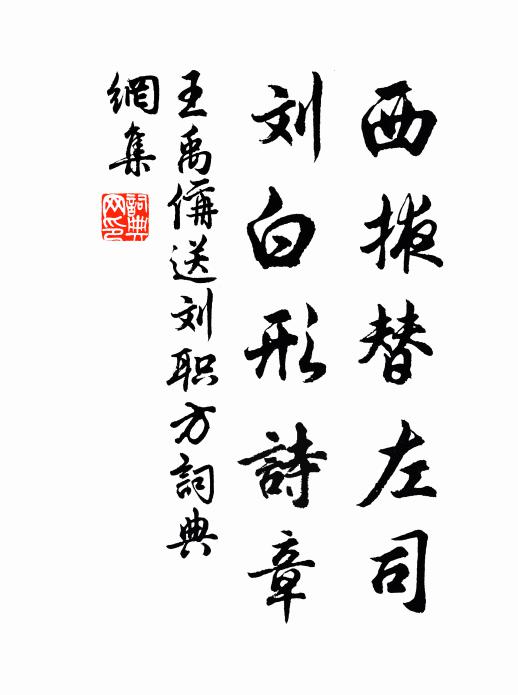 西掖替左司
刘白形詩章
王禹偁送刘职方詞典
網集
詞典網印